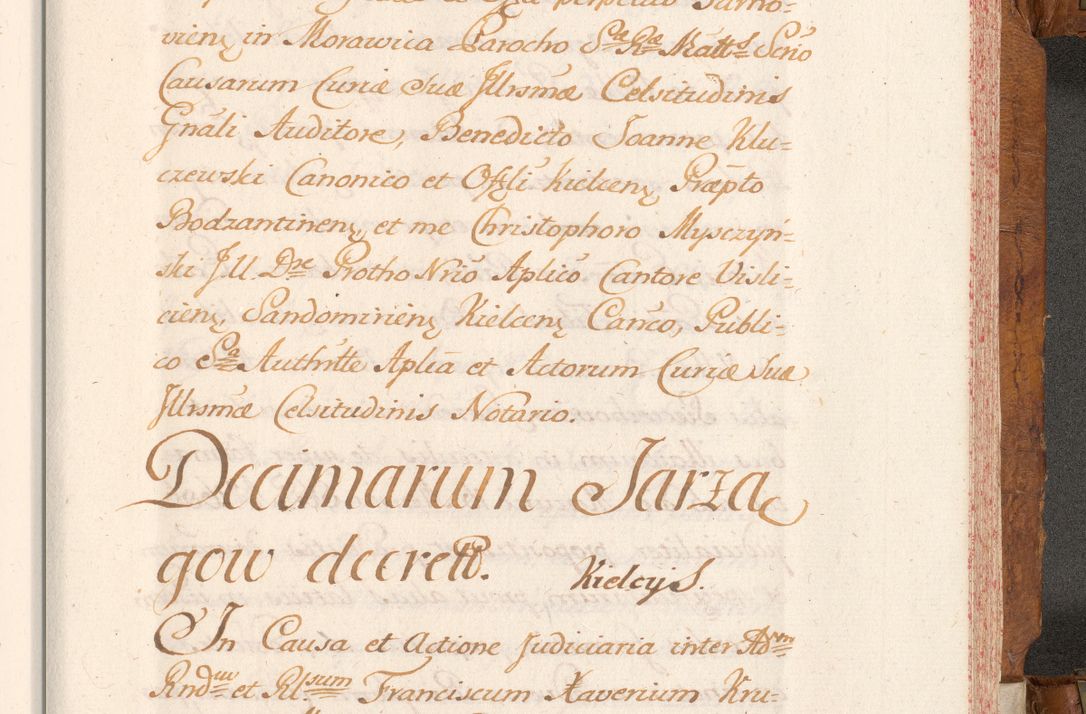 vien, in Morawica Parocho Sæ Rtæ Mattis Scrio
Causarum Curiæ Suæ Jllrsmæ Celsitudinis
Gnāli Auditore, Benedicto Joanne Klu=
czewski Canonico et Offli Kielcen, Præpto
Bodzantinen, et me Christophoro Mysczyń=
ski J.U. Dre ProthoNrio Aplico Cantore Visli=
cien, Sandomirien, Kielcen, Canco, Publi=
co Sa Authtte Aplia et Actorum Curiæ Suæ
Jllrsmæ Celsitudinis Notario.
Decimarum Jarza
gow decretū. Kielcij S.
In Causa et Actione Judiciaria inter Adm
Rnduu et Rlsum Franciscum Xaverium Kru=